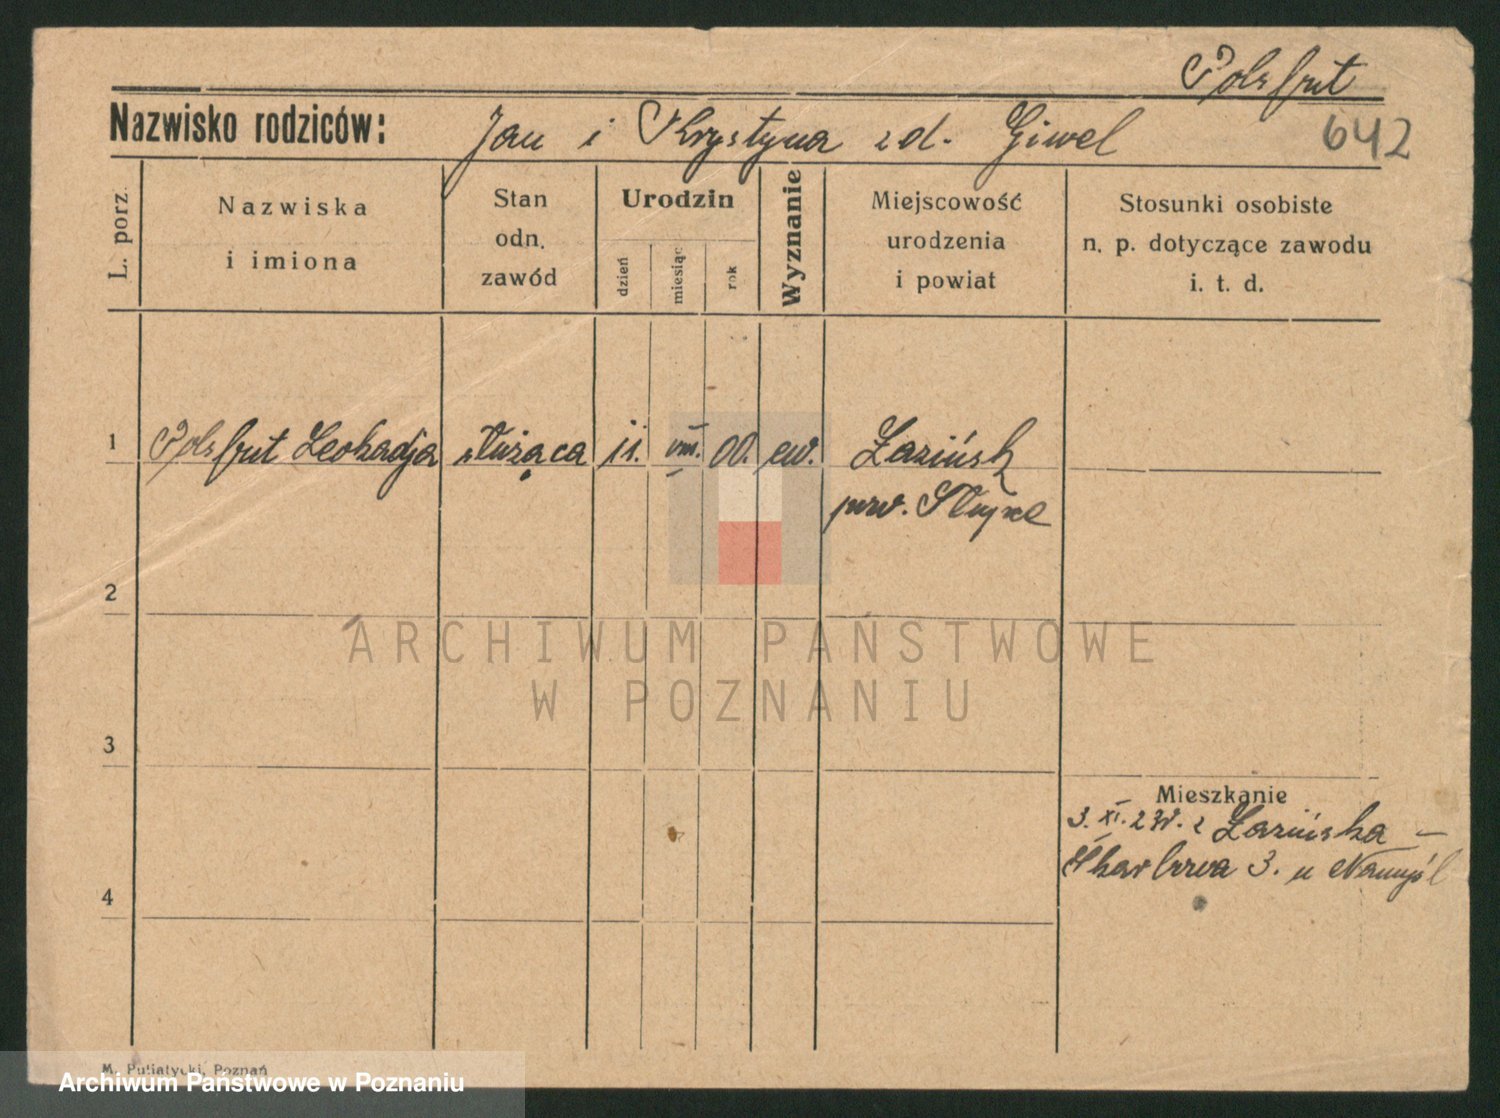 Polsfut
642
Nazwisko rodziców: Jan i Krystyna zd. Giwel
L. porz.
Nazwiska
i imiona
Stan
odn.
zawód
Urodzin
dzień
miesiąc
rok
Wyznanie
Miejscowość
urodzenia
i powiat
Stosunki osobiste
n. p. dotyczące zawodu
i. t. d.
1 Polsfut Leokadja służąca 11. VIII. 00. ew. Łazińsk
pow.
2
3
4
Mieszkanie
3. XI. 23r. z Łazińska –
3. u
M. Putiatycki, Poznań
ARCHIWUM PAŃSTWOWE
W POZNANIU
Archiwum Państwowe w Poznaniu